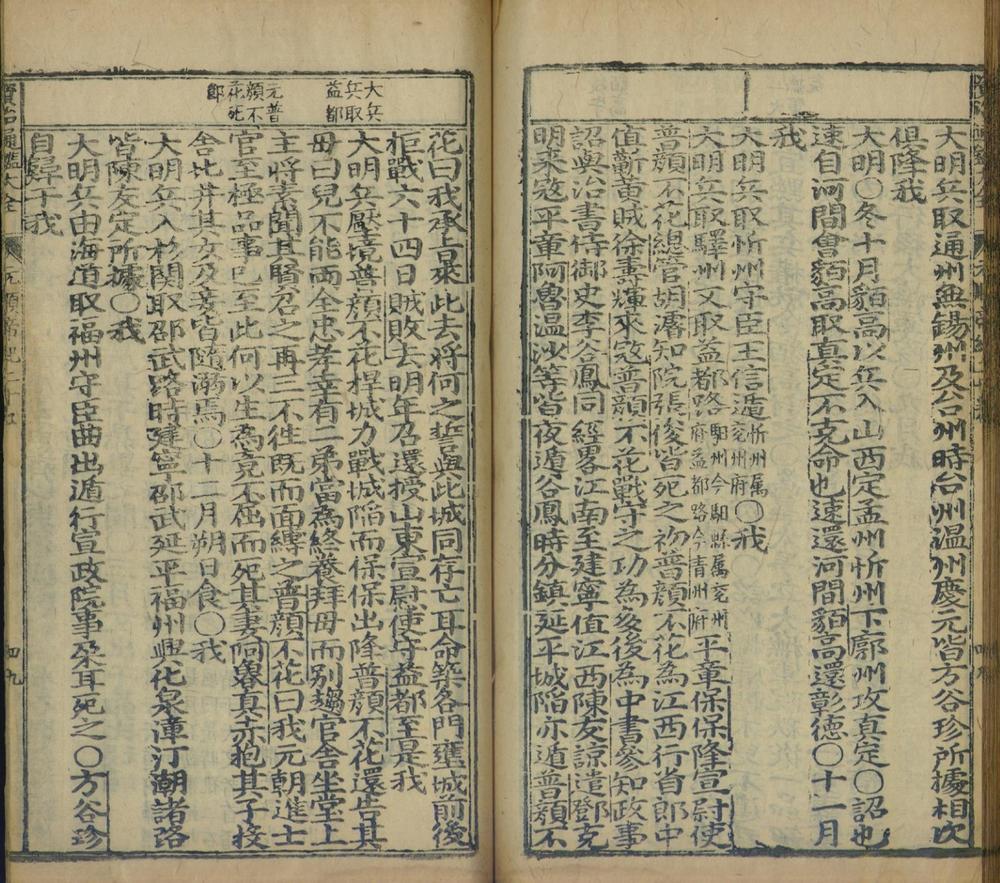 大明兵取通州無錫州及台州時台州溫州慶元皆方谷珍所據相次
俱降我
大明〇冬十月貊高以兵入山西定孟州忻州下鄜州攻真定〇詔也
速自河間會貊高取真定不克命也速還河間貊高還彰德〇十一月
我
大明兵取忻州守臣王信遁忻州属兖州府〇我
大明兵取驛州又取益都路馹州今馹縣属兖州府益都路今青州府平章保保降宣尉使
普顔不花緫管胡濬知院張俊皆死之初普顔不花為江西行省郎中
值蘄黄賊徐壽輝來寇普顔不花戰守之功為多後為中書參知政事
詔與治書侍御史李谷鳳同經畧江南至建寧值江西陳友諒遣鄧克
明来寇平章阿魯温沙等皆夜遁谷鳳時分鎮延平城陷亦遁普顔不
大兵取益都
元普顔不花死
花曰我承上旨來此去將何之誓與此城同存亡耳命築各門甕城前後
拒戰六十四日賊敗去明年乃還授山東宣尉使守益都至是我
大明兵壓境普顔不花桿城力戰城陷而保保出降普顔不花還告其
母曰兒不能两全忠孝幸有二弟當為終養拜母而别趨官舍坐堂上
主將素聞其賢召之再三不徃既而面縛之普顔不花曰我元朝進士
官至極品事已至此何以生為竟不屈而死其妻阿魯真亦抱其子投
舍北井其女及妾皆隨溺焉〇十二月朔日食〇我
大明兵入杉関取邵武路時建寧邵武延平福州興化泉漳汀潮諸路
皆陳友定所據〇我
大明兵由海道取福州守臣曲出遁行宣政院事朶耳死之〇方谷珍
自歸于我